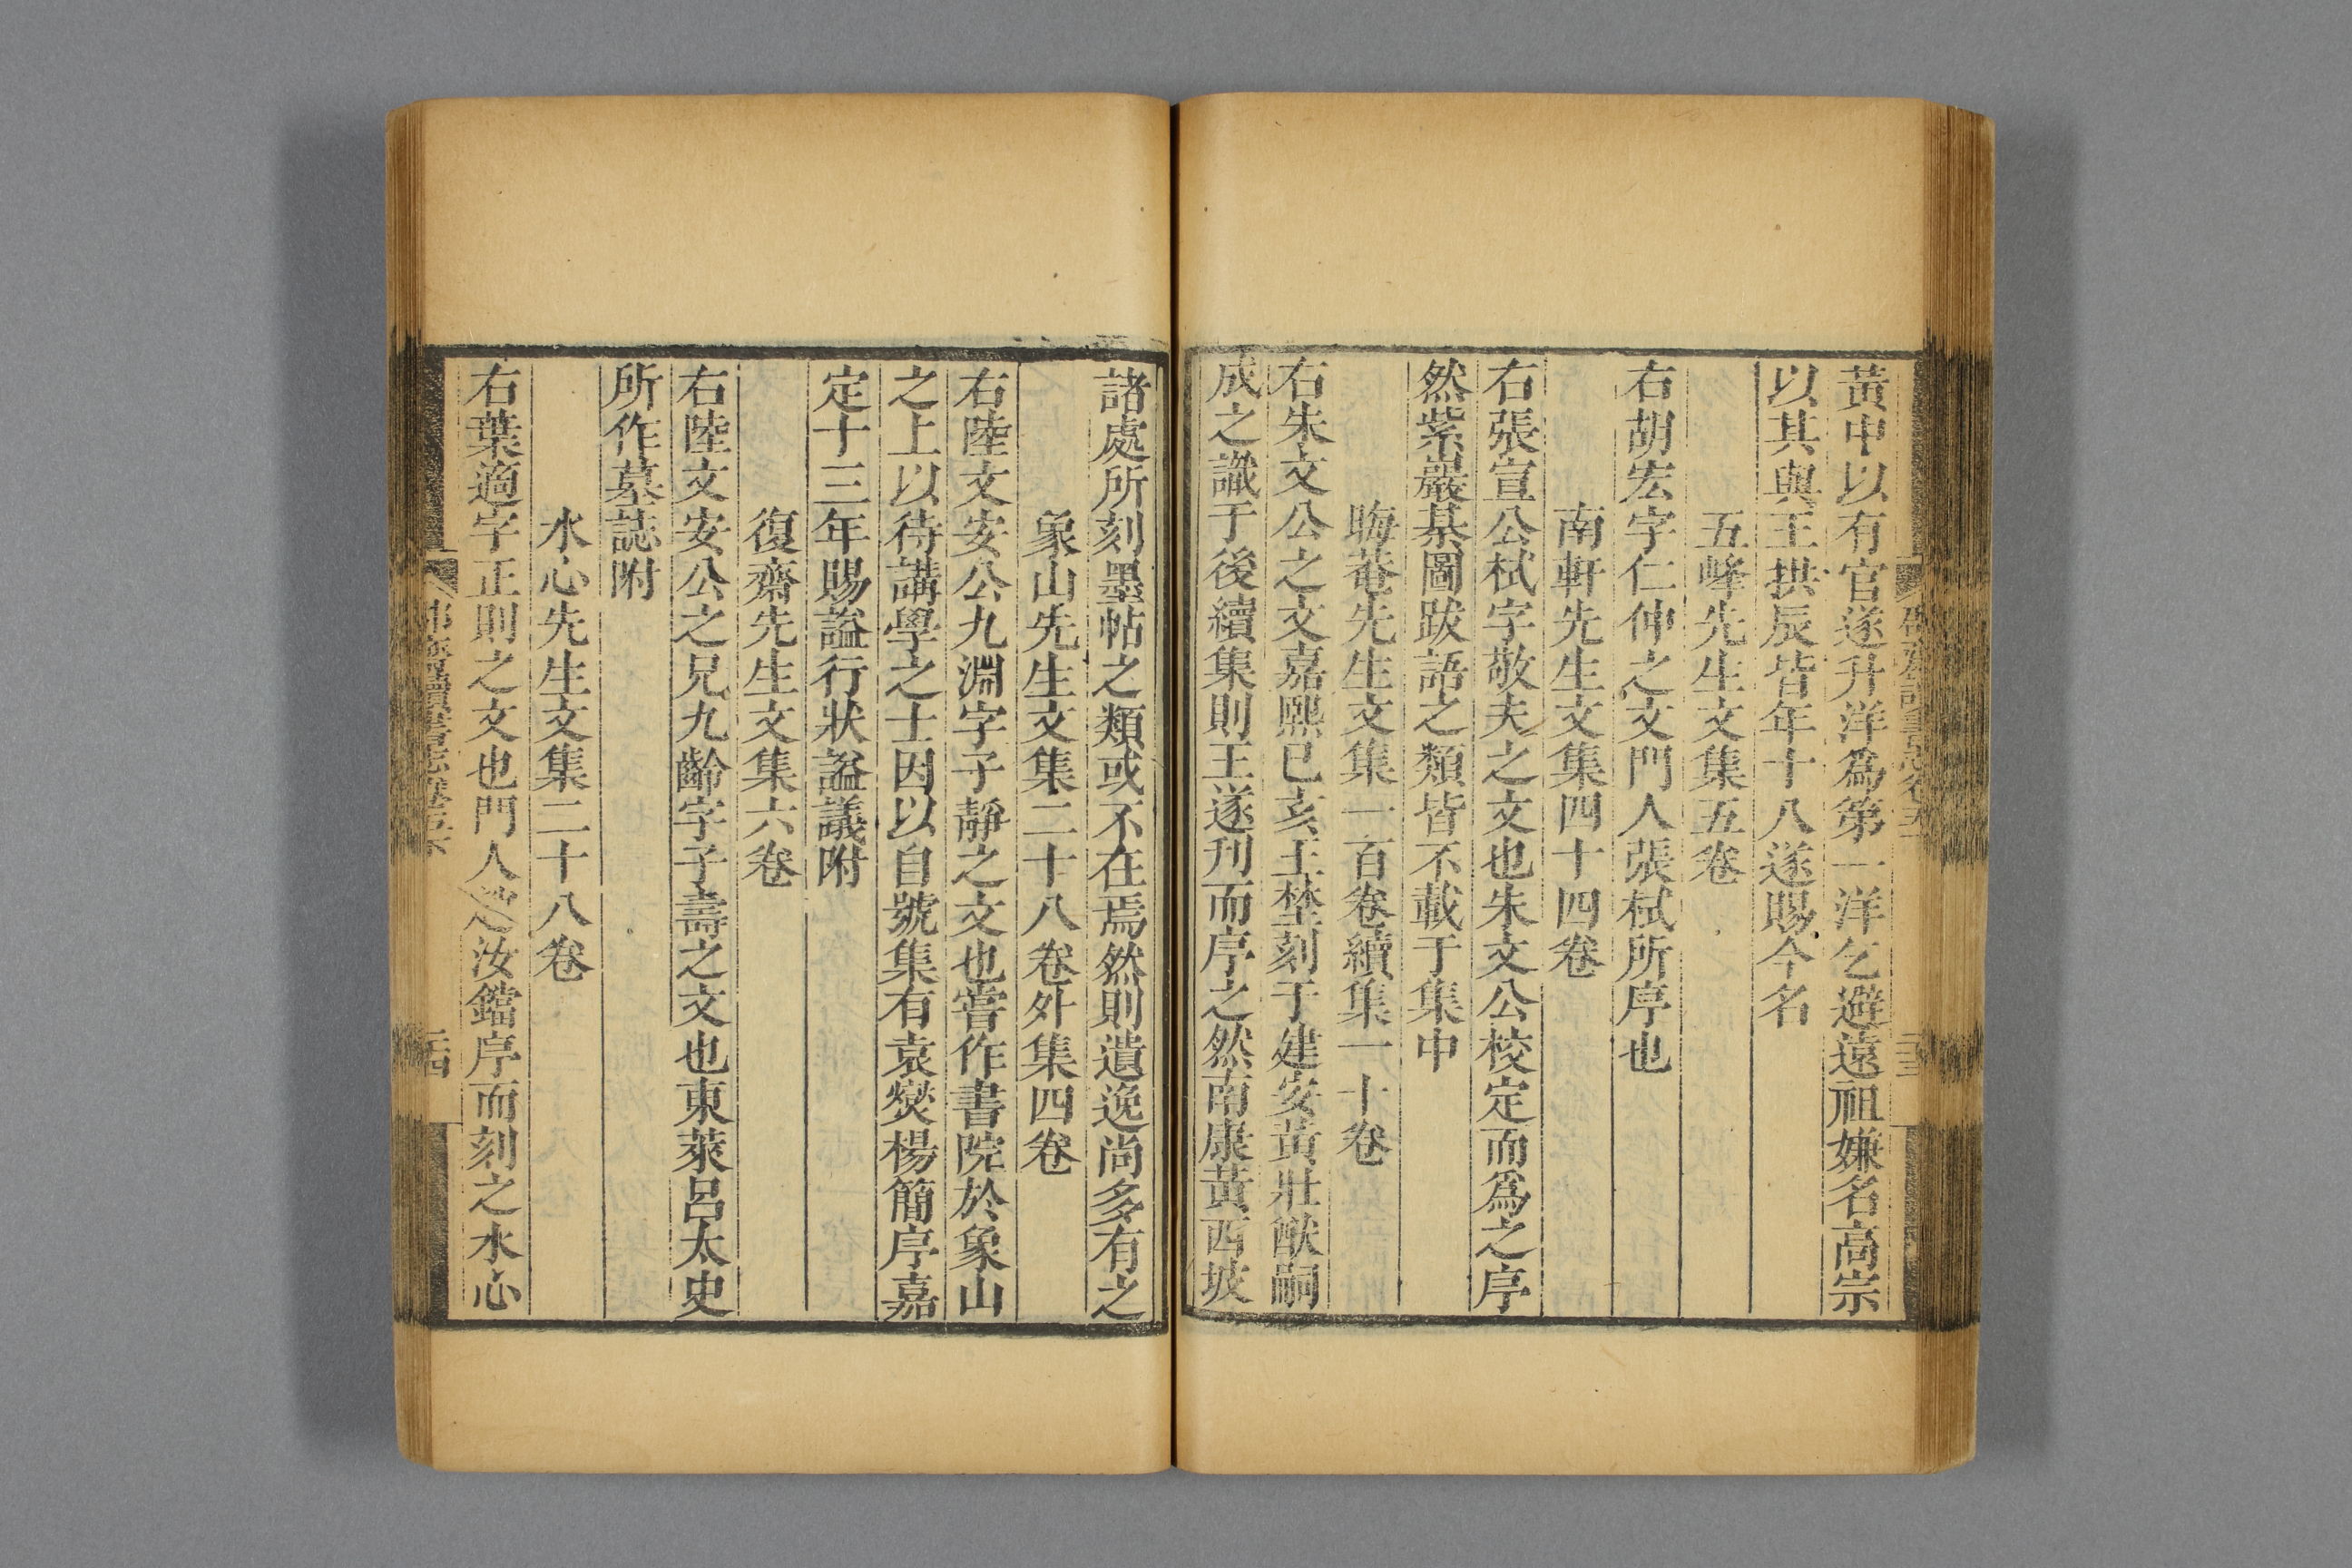 黃中以有官遂升洋爲第一洋乞避遠祖嫌名高宗
以其與王拱辰皆年十八遂賜今名
五峰先生文集五卷
右胡宏字仁仲之文門人張栻所序也
南軒先生文集四十四卷
右張宣公栻字敬夫之文也朱文公校定而爲之序
然紫巖某圖跋語之類皆不載于集中
晦菴先生文集一百卷續集一十卷
右朱文公之文嘉熙已亥王埜刻于建安黃壯猷嗣
成之識于後續集則王遂刊而序之然南康黃西坡
諸處所刻墨帖之類或不在焉然則遺逸尚多有之
象山先生文集二十八卷外集四卷
右陸文安公九淵字子靜之文也嘗作書院於象山
之上以待講學之士因以自號集有袁燮楊簡序嘉
定十三年賜謚行狀謚議附
復齋先生文集六卷
右陸文安公之兄九齡字子壽之文也東萊呂太史
所作墓誌附
水心先生文集二十八卷
右葉適字正則之文也門人趙汝鐺序而刻之水心